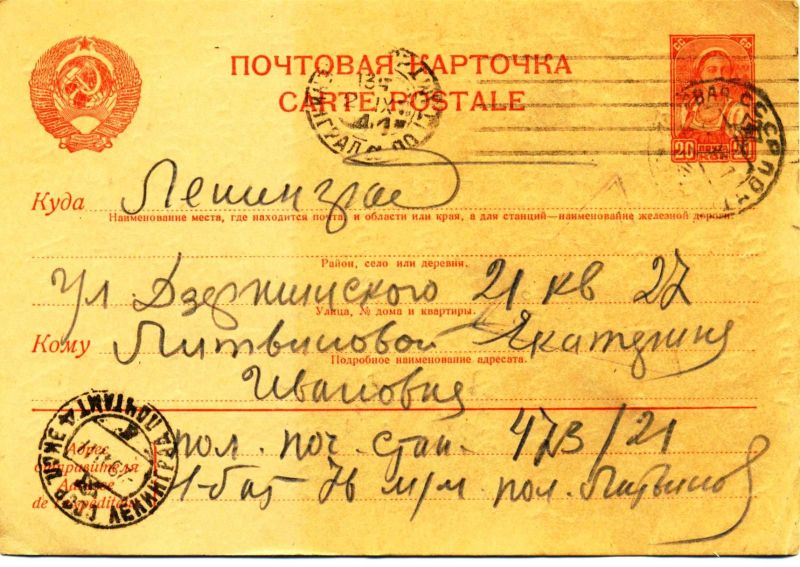 ПОЧТОВАЯ КАРТОЧКА
CARTE POSTALE
СССР
20 20
КОП
Куда Ленинград
Наименование места, где находится почта, и области или края, а для станций—наименование железной дороги.
Район, село или деревня.
Ул Дзержинского 21 кв 27
Улица, № дома и квартиры.
Кому Литвиновой Екатерине
Подробное наименование адресата.
Ивановне
Адрес отправителя
пол. поч. стан. 473/21
Adresse de l'expéditeur
1-бат 76 м/м пол. Литвинов
ЛЕНИНГРАД ПОЧТАМТ